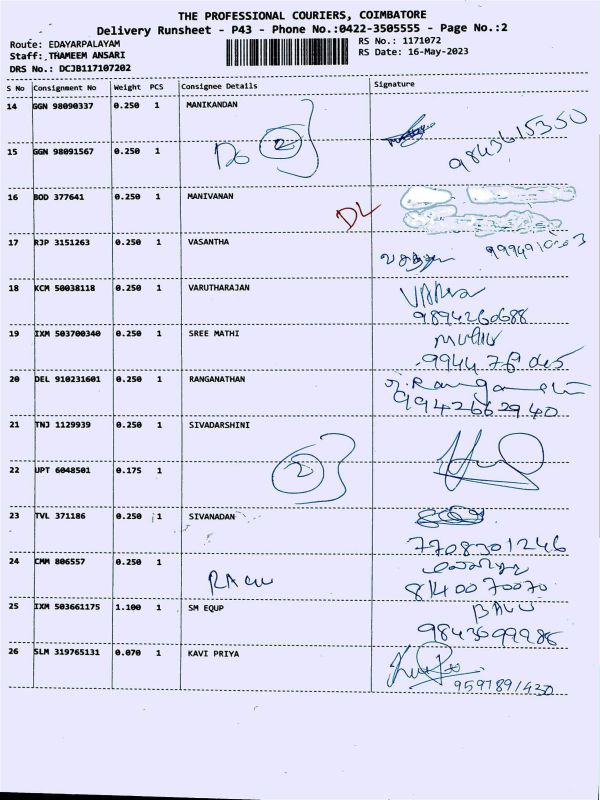 THE PROFESSIONAL COURIERS, COIMBATORE
Delivery Runsheet - P43 - Phone No.:0422-3505555 - Page No.:2
Route: EDAYARPALAYAM
RS No.: 1171072
Staff: THAMEEM ANSARI
RS Date: 16-May-2023
DRS No.: DCJB117107202
S No Consignment No Weight PCS Consignee Details Signature
14 GGN 98090337 0.250 1 MANIKANDAN
2
9843615350
15 GGN 98091567 0.250 1
16 BOD 377641 0.250 1 MANIVANAN
DL
17 RJP 3151263 0.250 1 VASANTHA
18 KCM 50038118 0.250 1 VARUTHARAJAN
9894260688
19 IXM 503700340 0.250 1 SREE MATHI
20 DEL 910231601 0.250 1 RANGANATHAN
9942662940
21 TNJ 1129939 0.250 1 SIVADARSHINI
2
22 UPT 6048501 0.175 1
23 TVL 371186 0.250 1 SIVANADAN
7708301246
24 CMM 806557 0.250 1
8140070070
25 IXM 503661175 1.100 1 SM EQUP
26 SLM 319765131 0.070 1 KAVI PRIYA
9597891430